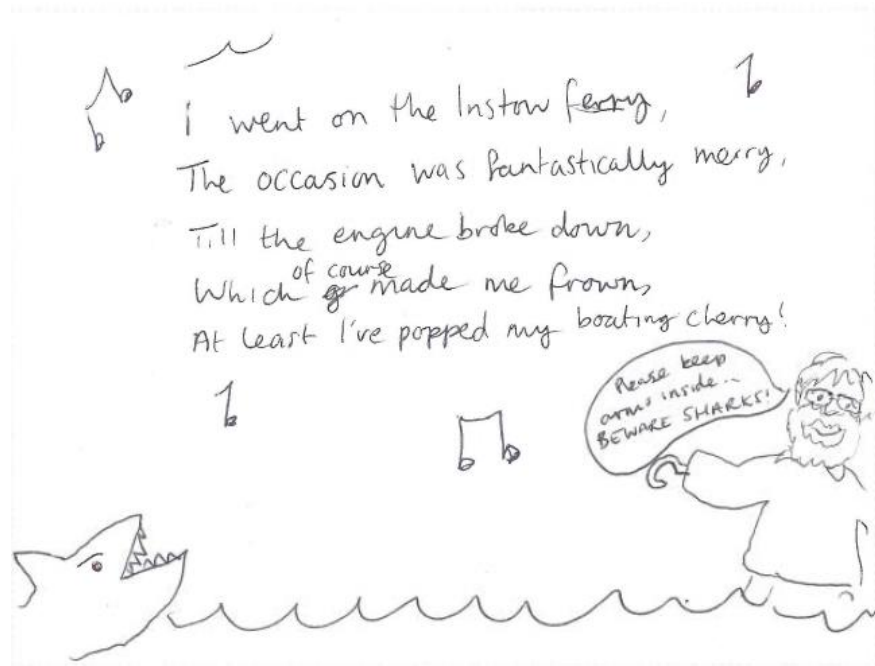 I went on the Instow ferry,
The occasion was fantastically merry,
Till the engine broke down,
Which of course made me frown,
At least I've popped my boating cherry!
Please keep
arms inside...
BEWARE SHARKS!